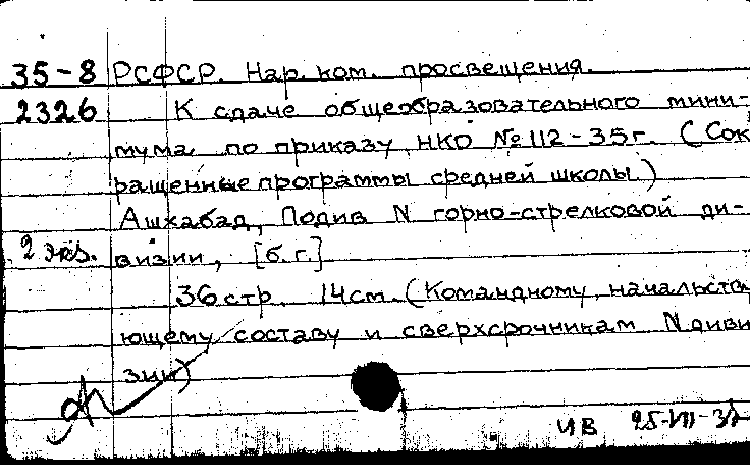 35-8 РСФСР. Нар. ком. просвещения.
2326 К сдаче общеобразовательного мини-
мума по приказу НКО № 112-35г. (Сок
ращенные программы средней школы)
Ашхабад, Подив N горно-стрелковой ди-
2 экз. визии, [б.г.]
36 стр. 14 см. (Командному, начальству
ющему составу и сверхсрочникам N диви
зии)
ИВ 25-VII-